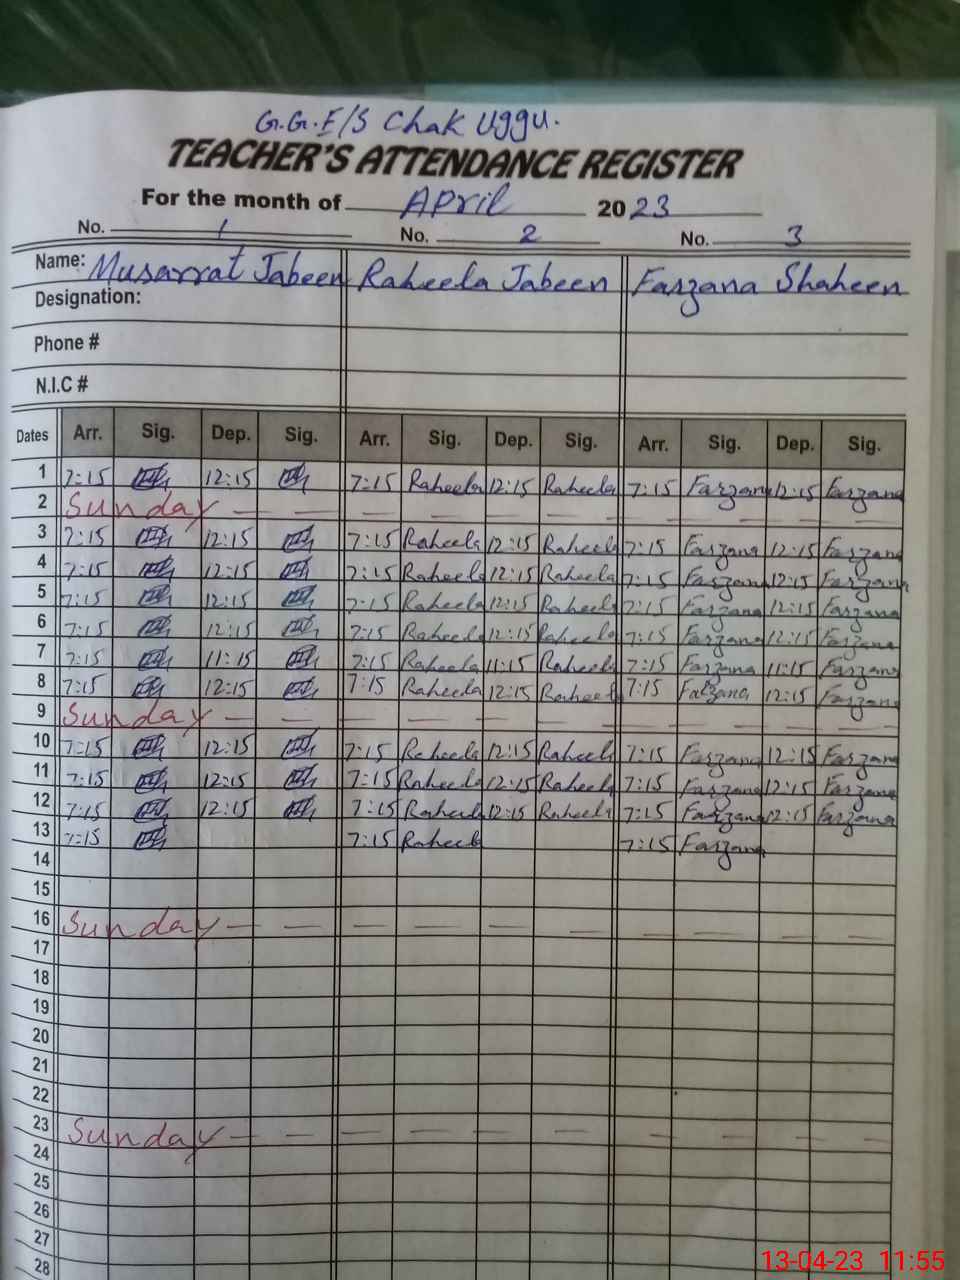 G.G.E/S Chak Uggu.
TEACHER'S ATTENDANCE REGISTER
For the month of April 2023
No. 1 No. 2 No. 3
Name: Musarrat Jabeen Raheela Jabeen Farzana Shaheen
Designation:
Phone #
N.I.C #
Dates Arr. Sig. Dep. Sig. Arr. Sig. Dep. Sig. Arr. Sig. Dep. Sig.
1 7:15 12:15 7:15 Raheela 12:15 Raheela 7:15 Farzana 12:15 Farzana
2 Sunday
3 7:15 12:15 7:15 Raheela 12:15 Raheela 7:15 Farzana 12:15 Farzana
4 7:15 12:15 7:15 Raheela 12:15 Raheela 7:15 Farzana 12:15 Farzana
5 7:15 12:15 7:15 Raheela 12:15 Raheela 7:15 Farzana 12:15 Farzana
6 7:15 12:15 7:15 Raheela 12:15 Raheela 7:15 Farzana 12:15 Farzana
7 7:15 11:15 7:15 Raheela 11:15 Raheela 7:15 Farzana 11:15 Farzana
8 7:15 12:15 7:15 Raheela 12:15 Raheela 7:15 Farzana 12:15 Farzana
9 Sunday
10 7:15 12:15 7:15 Raheela 12:15 Raheela 7:15 Farzana 12:15 Farzana
11 7:15 12:15 7:15 Raheela 12:15 Raheela 7:15 Farzana 12:15 Farzana
12 7:15 12:15 7:15 Raheela 12:15 Raheela 7:15 Farzana 12:15 Farzana
13 7:15 7:15 Raheela 7:15 Farzana
14
15
16 Sunday
17
18
19
20
21
22
23 Sunday
24
25
26
27
28
13-04-23 11:55